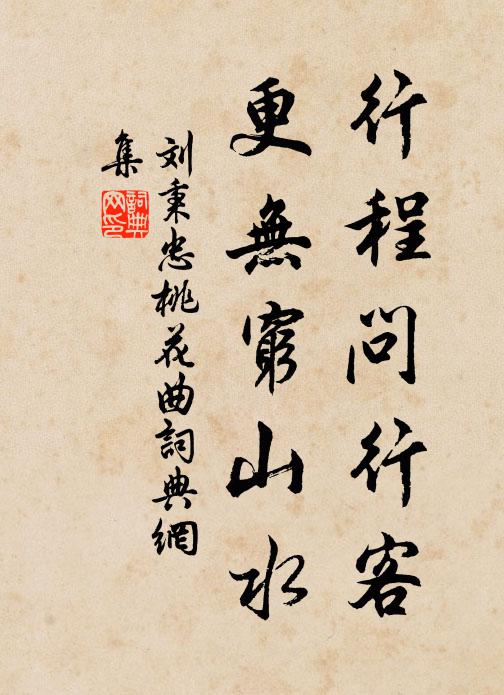 行程問行客
更無窮山水
刘秉忠桃花曲詞典網
集
詞典网印